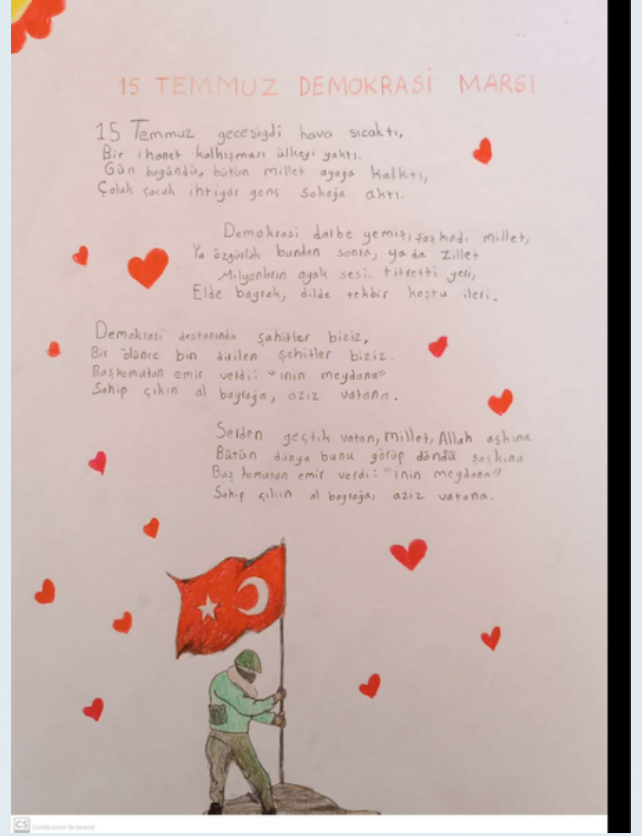 15 TEMMUZ DEMOKRASİ MARŞI
15 Temmuz gecesiydi hava sıcaktı,
Bir ihanet kalkışması ülkeyi yaktı.
Gün bugündü, bütün millet ayağa kalktı,
Çoluk çocuk ihtiyar genç sokağa aktı.
Demokrasi darbe yemiş, şaşkındı millet,
Ya özgürlük bundan sonra, ya da zillet
Milyonların ayak sesi titretti yeri,
Elde bayrak, dilde tekbir koştu ileri.
Demokrasi destanında şahitler biziz,
Bir ölünce bin dirilen şehitler biziz.
Başkomutan emir verdi: "inin meydana"
Sahip çıkın al bayrağa, aziz vatana.
Serden geçtik vatan, millet, Allah aşkına
Bütün dünya bunu görüp döndü şaşkına
Baş komutan emir verdi: "inin meydana"
Sahip çıkın al bayrağa, aziz vatana.
CS CamScanner ile tarandı